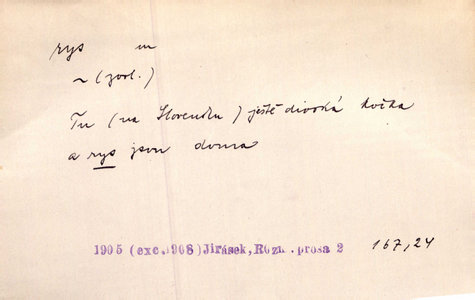 rys m
~ (zool.)
Tu (na Slovensku) ještě divoká kočka
a rys jsou doma
1905 (exc.1908) Jirásek, Rozm. prosa 2 167,24